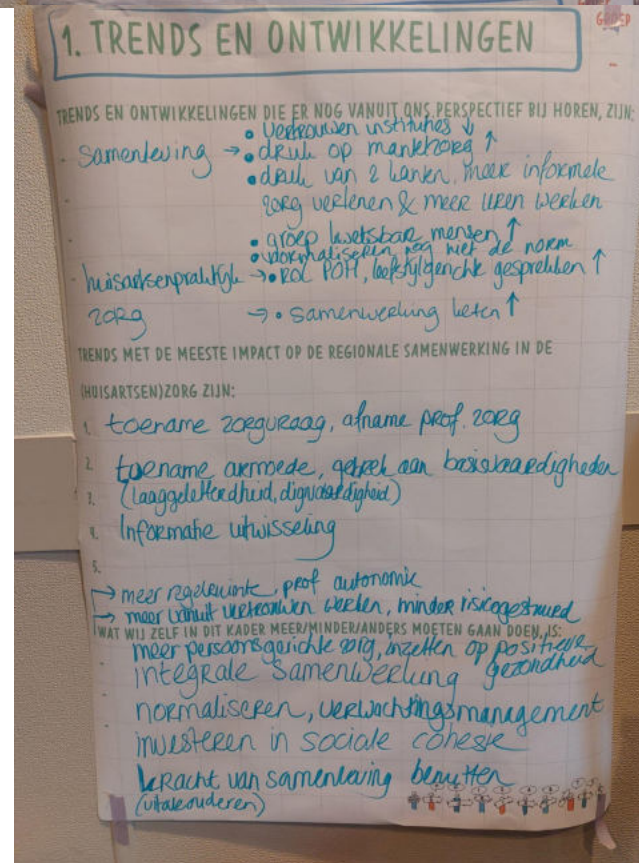 GROEP
1. TRENDS EN ONTWIKKELINGEN
TRENDS EN ONTWIKKELINGEN DIE ER NOG VANUIT ONS PERSPECTIEF BIJ HOREN, ZIJN:
• vertrouwen instituties ↓
- Samenleving → • druk op mantelzorg ↑
• druk van 2 kanten, meer informele
zorg verlenen & meer uren werken
• groep kwetsbare mensen ↑
• normaliseren nog niet de norm
- huisartsenpraktijk → • ROL POH, leefstijlgerichte gesprekken ↑
zorg → • samenwerking keten ↑
TRENDS MET DE MEESTE IMPACT OP DE REGIONALE SAMENWERKING IN DE
(HUISARTSEN)ZORG ZIJN:
1. toename zorgvraag, afname prof. zorg
2. toename armoede, gebrek aan basisvaardigheden
3. (laaggeletterdheid, digivaardigheid)
4. Informatie uitwisseling
5.
→ meer regelruimte, prof autonomie
→ meer vanuit vertrouwen werken, minder risicogestuurd
WAT WIJ ZELF IN DIT KADER MEER/MINDER/ANDERS MOETEN GAAN DOEN, IS:
meer persoonsgerichte zorg, inzetten op positieve
gezondheid
- integrale samenwerking
- normaliseren, verwachtingsmanagement
investeren in sociale cohesie
kracht van samenleving benutten
(vitale ouderen)